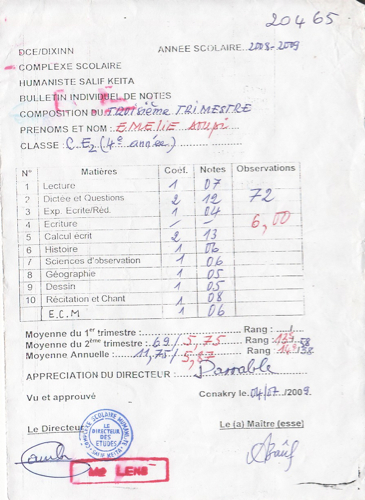 20465
DCE/DIXINN ANNEE SCOLAIRE..2008-2009
COMPLEXE SCOLAIRE
HUMANISTE SALIF KEITA
BULLETIN INDIVIDUEL DE NOTES
COMPOSITION DU TROISième TRIMESTRE
PRENOMS ET NOM : EMELIE
CLASSE : C.E2 (4e année)
N° Matières Coéf. Notes Observations
1 Lecture 1 07
2 Dictée et Questions 2 12 72
3 Exp. Ecrite/Réd. 1 04
4 Ecriture / — 6,00
5 Calcul écrit 2 13
6 Histoire 1 06
7 Sciences d'observation 1 06
8 Géographie 1 05
9 Dessin 1 05
10 Récitation et Chant 1 08
E.C.M 1 06
Moyenne du 1er trimestre : Rang :
Moyenne du 2ème trimestre : 69/5,75 Rang :
Moyenne Annuelle : 11,75/ Rang :
APPRECIATION DU DIRECTEUR : Passable
Vu et approuvé Conakry le 04/07/2009
Le Directeur Le (a) Maître (esse)
LE DIRECTEUR DES ETUDES